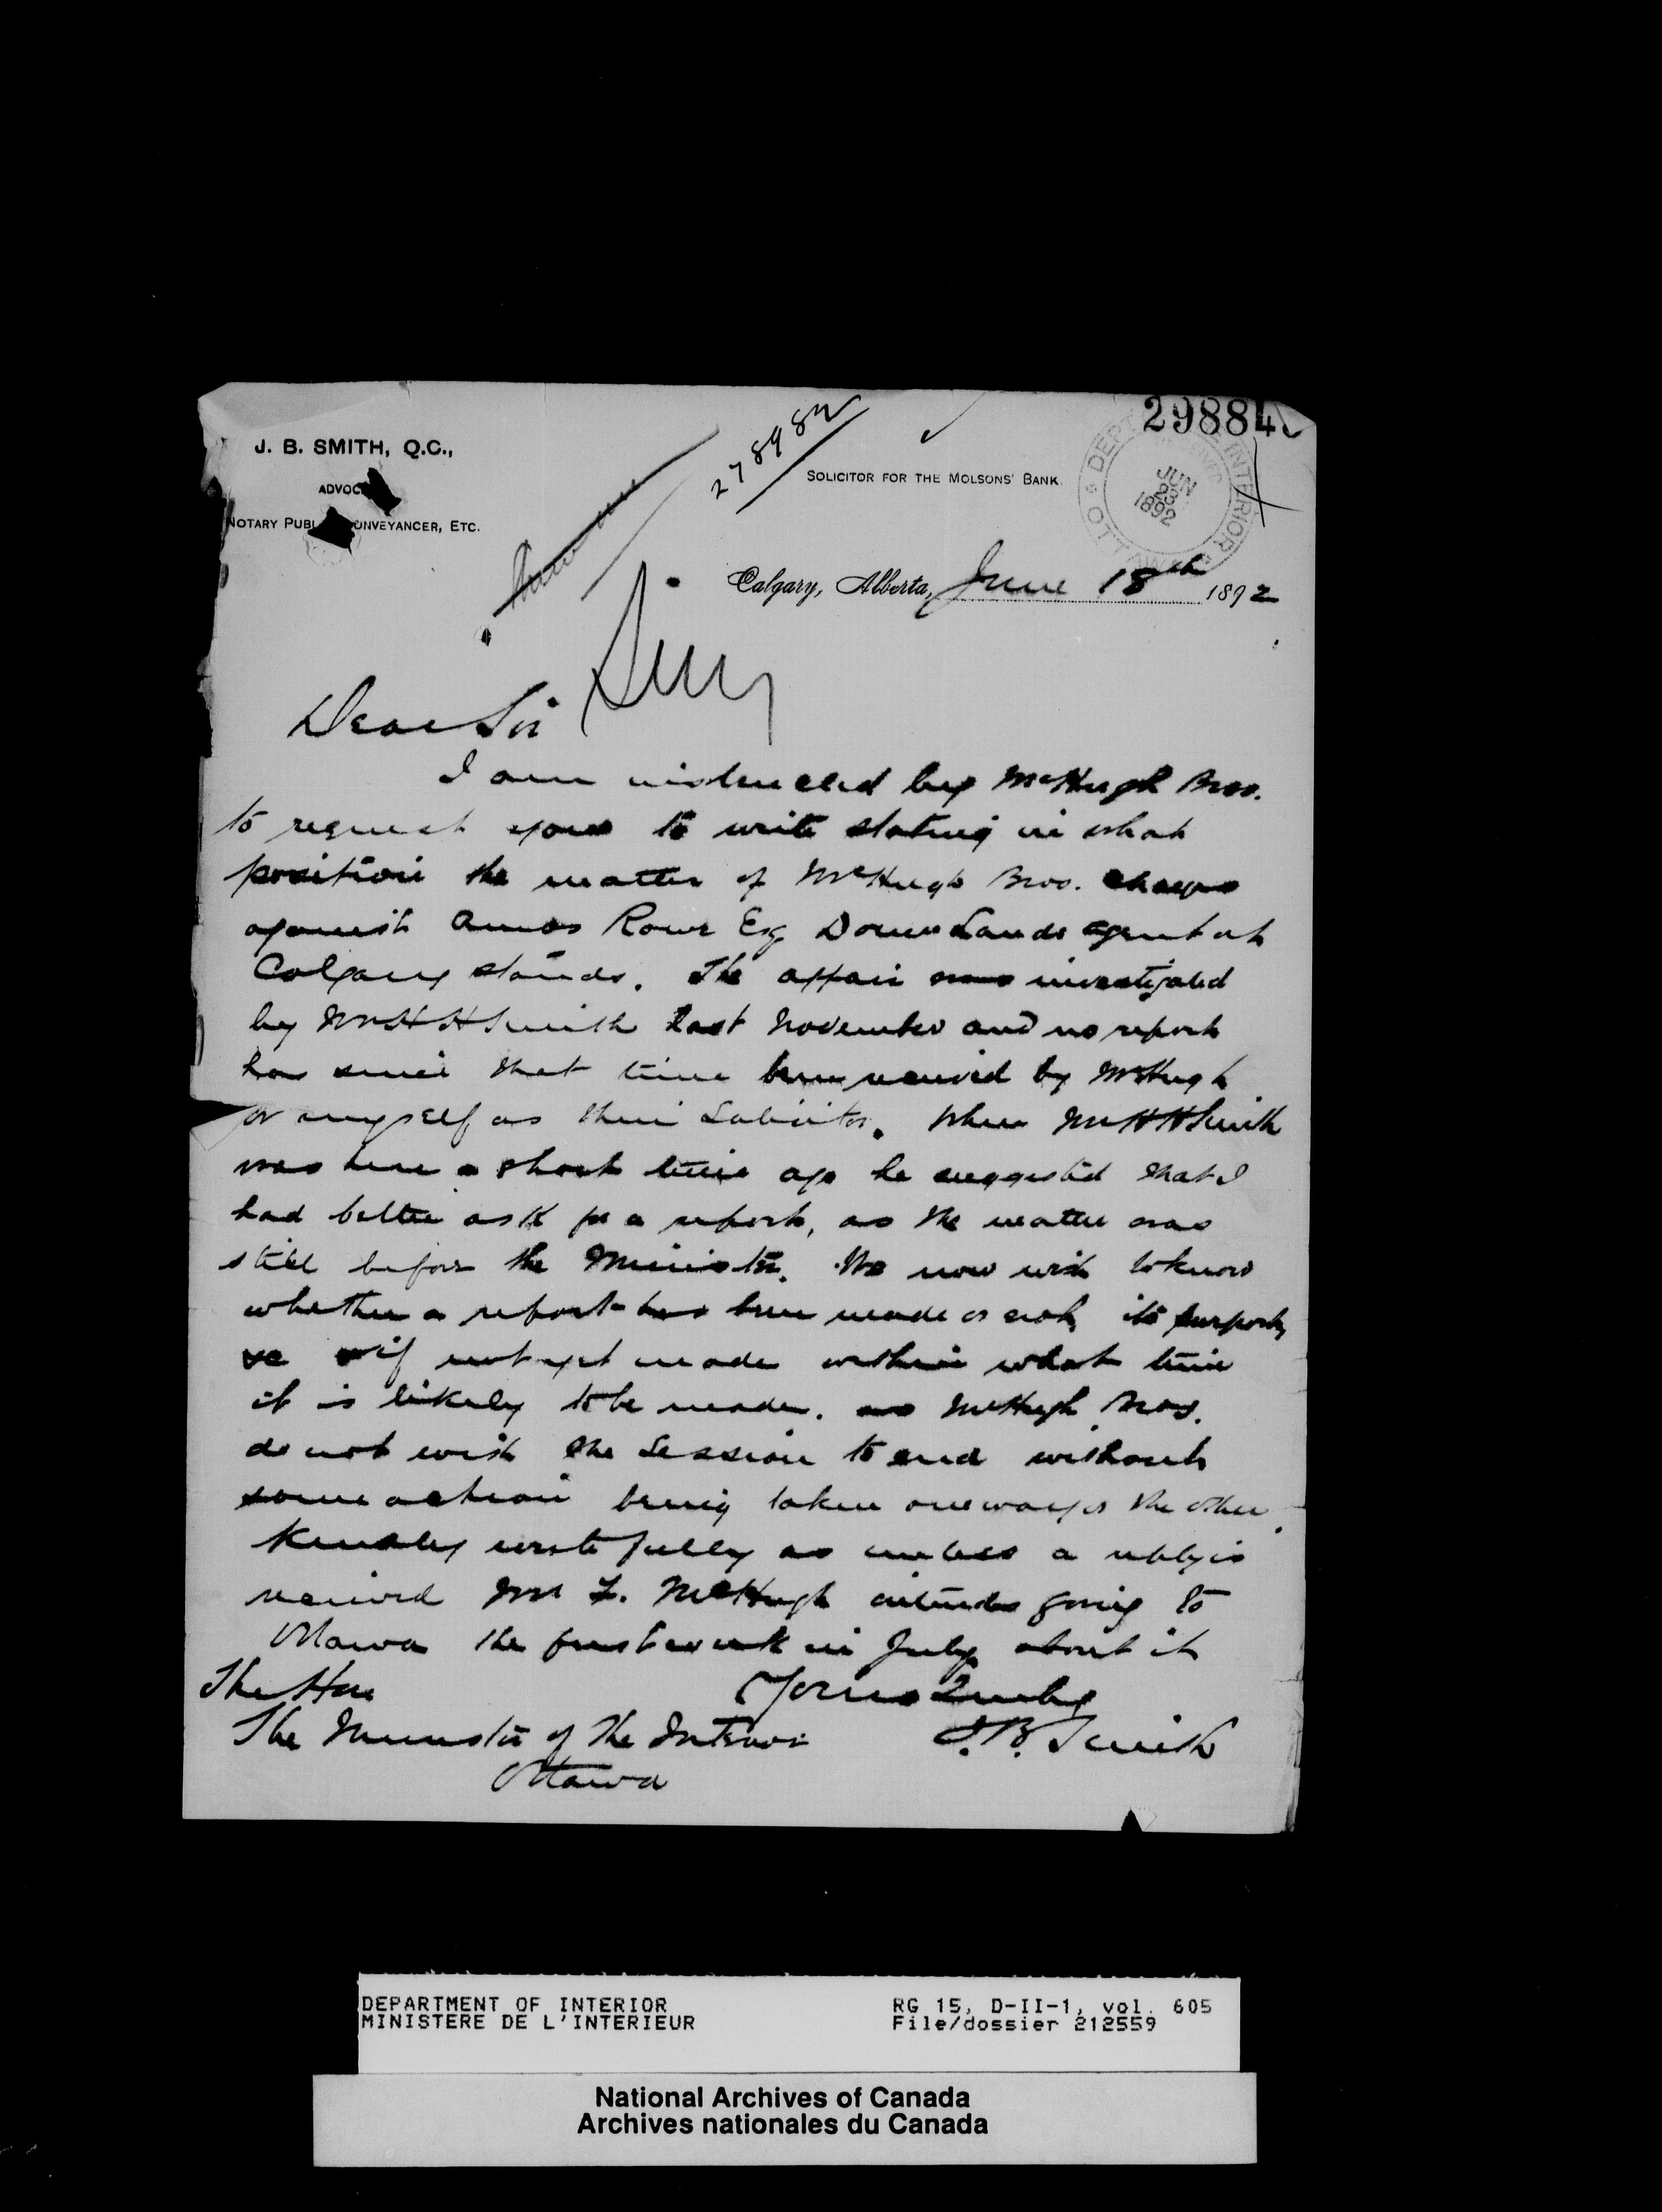 29884
278982
J. B. SMITH, Q.C.,
ADVOC
NOTARY PUBL ONVEYANCER, ETC.
SOLICITOR FOR THE MOLSONS' BANK.
DEPT INTERIOR
JUN 23 1892
OTTAWA
Calgary, Alberta, June 18th 1892
Dear Sir
I am instructed by McHugh Bros.
to request you to write stating in what
position the matter of McHugh Bros. charges
against Amos Rowe Esq Domn Lands agent at
Calgary stands. The affair was investigated
by Mr H H Smith last November and no report
has since that time been received by McHugh
or myself as their Solicitor. When Mr H H Smith
was here a short time ago he suggested that I
had better ask for a report, as the matter was
still before the Minister. We now wish to know
whether a report has been made or not, its purport,
&c if not yet made within what time
it is likely to be made. as McHugh Bros.
do not wish the Session to end without
some action being taken one way or the other.
Kindly write fully as unless a reply is
received Mr F. McHugh intends going to
Ottawa the first week in July about it
The Hon
Yours Truly
The Minister of the Interior
J.B. Smith
Ottawa
DEPARTMENT OF INTERIOR
MINISTERE DE L'INTERIEUR
RG 15, D-II-1, vol. 605
File/dossier 212559
National Archives of Canada
Archives nationales du Canada